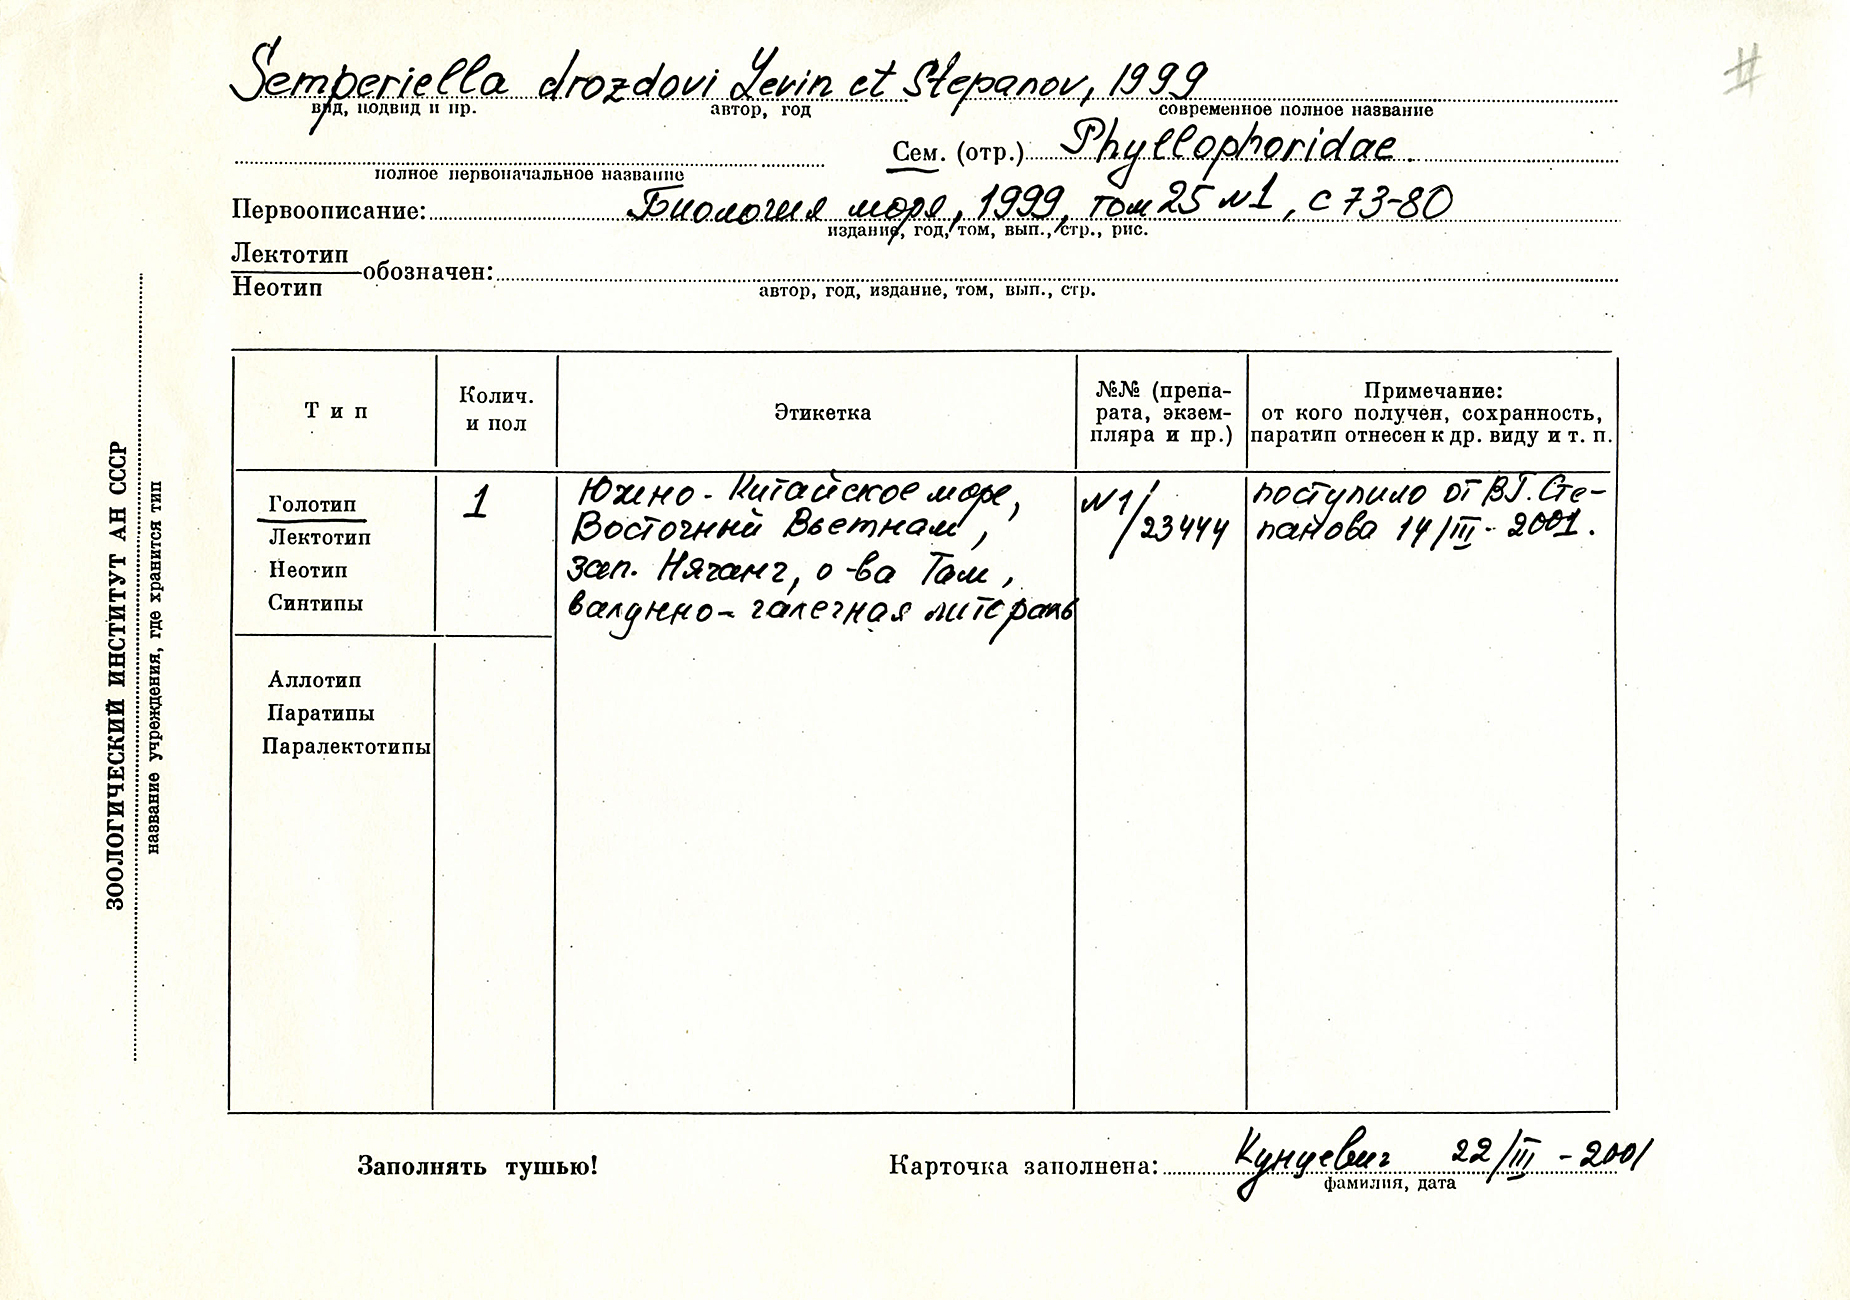 Semperiella drozdovi Levin et Stepanov, 1999
вид, подвид и пр. автор, год современное полное название
Сем. (отр.) Phyllophoridae.
полное первоначальное название
Первоописание: Биология моря, 1999, том 25 №1, с 73-80
издание, год, том, вып., стр., рис.
Лектотип
обозначен:
Неотип
автор, год, издание, том, вып., стр.
ЗООЛОГИЧЕСКИЙ ИНСТИТУТ АН СССР
название учреждения, где хранится тип
Тип
Колич.
и пол
Этикетка
№№ (препа-
рата, экзем-
пляра и пр.)
Примечание:
от кого получен, сохранность,
паратип отнесен к др. виду и т. п.
Голотип
Лектотип
Неотип
Синтипы
1
Южно-Китайское море,
Восточный Вьетнам,
зап. Нячанг, о-ва Там,
валунно-галечная литораль
№1/
23444
поступило от В.Г. Сте-
панова 14/III-2001.
Аллотип
Паратипы
Паралектотипы
Заполнять тушью!
Карточка заполнена: Кунцевич 22/III-2001
фамилия, дата